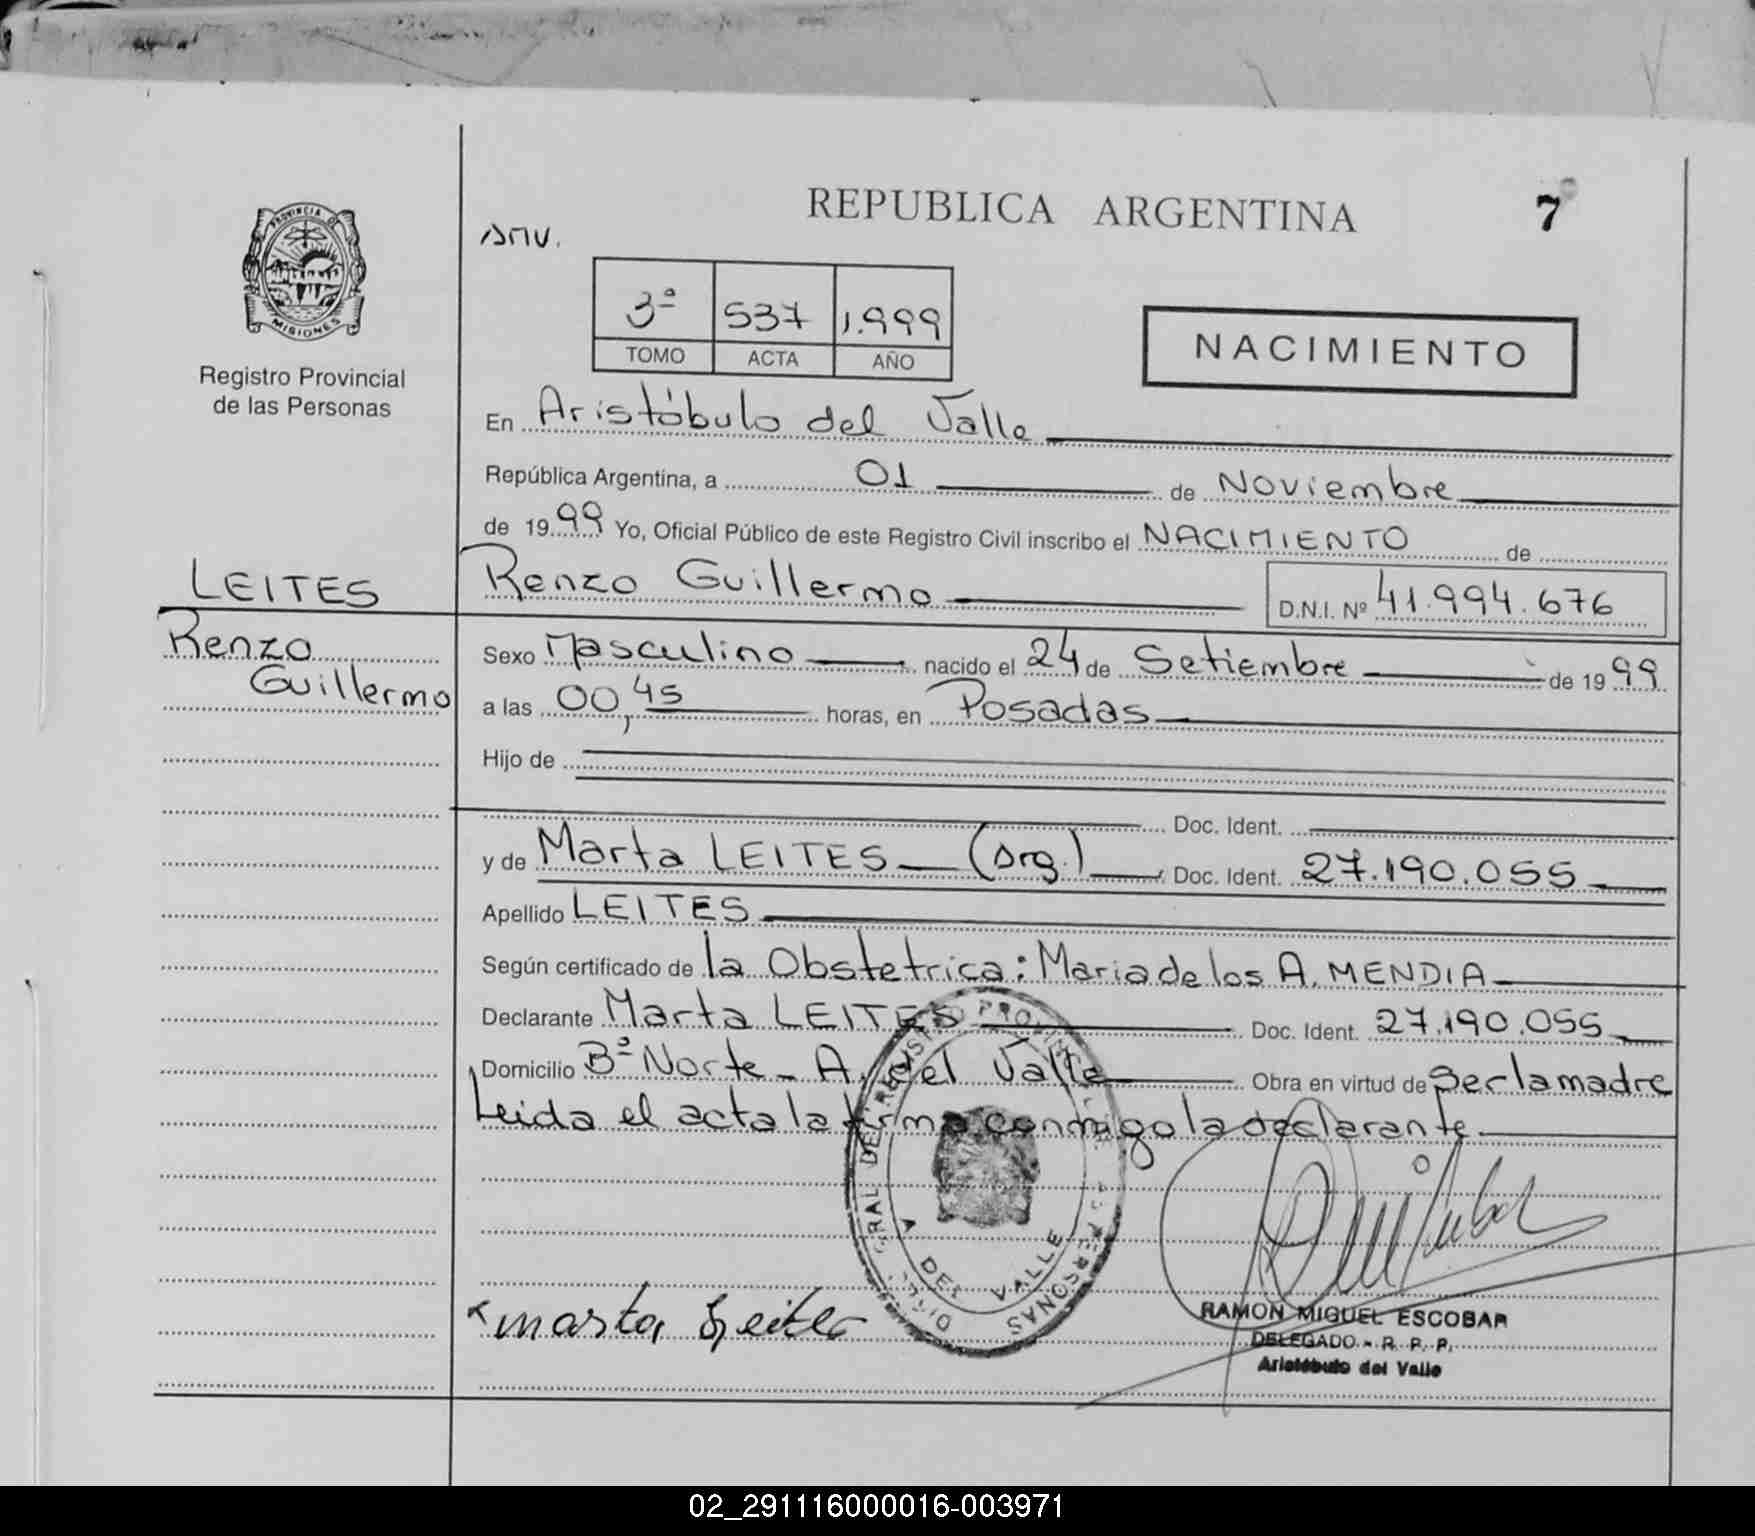 REPUBLICA ARGENTINA
7
PROVINCIA DE
MISIONES
Registro Provincial
de las Personas
3ª 537 1.999
TOMO ACTA AÑO
NACIMIENTO
En Aristóbulo del Valle
República Argentina, a 01 de Noviembre
de 1999 Yo, Oficial Público de este Registro Civil inscribo el NACIMIENTO de
LEITES
Renzo Guillermo
D.N.I. Nº 41.994.676
Renzo
Guillermo
Sexo Masculino nacido el 24 de Setiembre de 1999
a las 00,45 horas, en Posadas
Hijo de
Doc. Ident.
y de Marta LEITES (Arg.) Doc. Ident. 27.190.055
Apellido LEITES
Según certificado de la Obstetrica: Maria de los A. MENDIA
Declarante Marta LEITES Doc. Ident. 27.190.055
Domicilio Bº Norte - A. del Valle Obra en virtud de Ser la madre
Leida el acta la firma conmigo la declarante
DEL VALLE
PERSONAS
Marta Leites
RAMON MIGUEL ESCOBAR
DELEGADO - R. P. P.
Aristóbulo del Valle
02_291116000016-003971